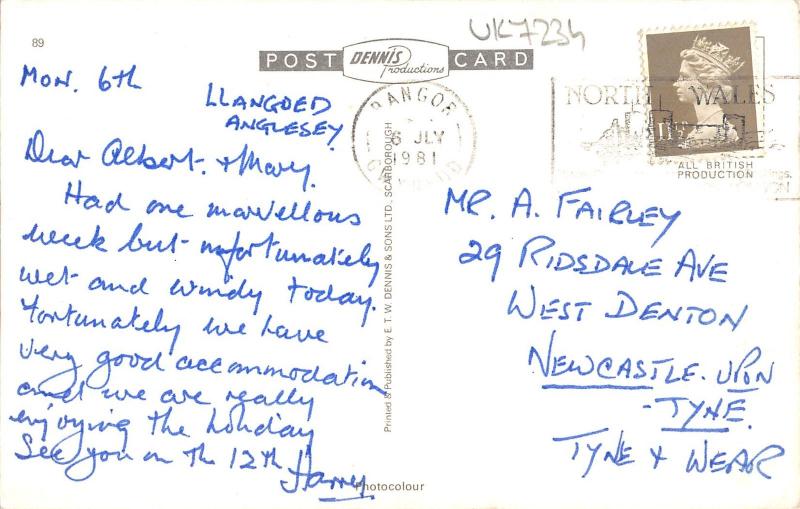 UK7234
89
POST DENNIS Productions CARD
Mon. 6th
LLANGOED
ANGLESEY
Dear Albert. + Mary.
Had one marvellous
week but unfortunately
wet and windy today.
Fortunately we have
very good accommodation
and we are really
enjoying the holiday
See you on th 12th Harry.
BANGOR
6 JLY
1981
GWYNEDD
NORTH WALES
11½
ALL BRITISH
PRODUCTION
Printed & Published by E. T. W. DENNIS & SONS LTD., SCARBOROUGH
MR. A. FAIRLEY
29 RIDSDALE AVE
WEST DENTON
NEWCASTLE. UPON
-TYNE.
TYNE + WEAR
Photocolour